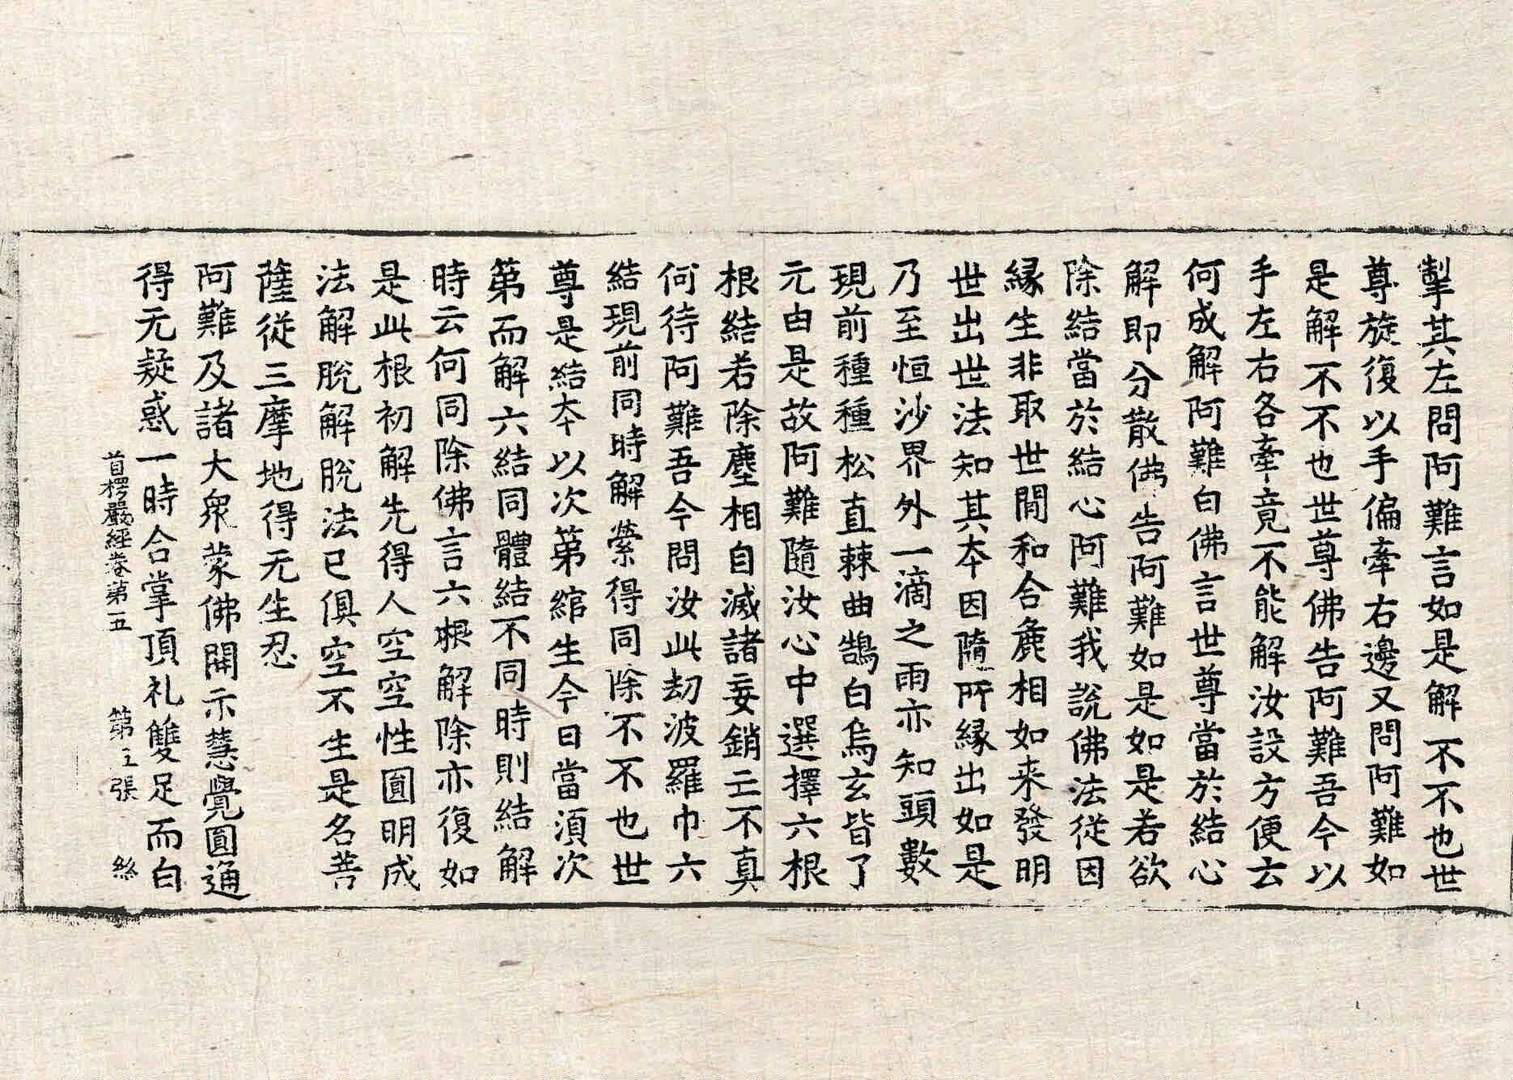 掣其左問阿難言如是解不不也世
尊旋復以手偏牽右邊又問阿難如
是解不不也世尊佛告阿難吾今以
手左右各牽竟不能解汝設方便云
何成解阿難白佛言世尊當於結心
解即分散佛告阿難如是如是若欲
除結當於結心阿難我說佛法從因
縁生非取世間和合麁相如来發明
世出世法知其本因隨所縁出如是
乃至恒沙界外一滴之雨亦知頭數
現前種種松直棘曲鵠白烏玄皆了
元由是故阿難隨汝心中選擇六根
根結若除塵相自滅諸妄銷亡不真
何待阿難吾今問汝此劫波羅巾六
結現前同時解縈得同除不不也世
尊是結本以次第綰生今日當湏次
第而解六結同體結不同時則結解
時云何同除佛言六根解除亦復如
是此根初解先得人空空性圓明成
法解脫解脫法已俱空不生是名菩
薩從三摩地得无生忍
阿難及諸大衆蒙佛開示慧覺圓通
得无疑惑一時合掌頂礼雙足而白
首楞嚴經卷第五 第五張 絲